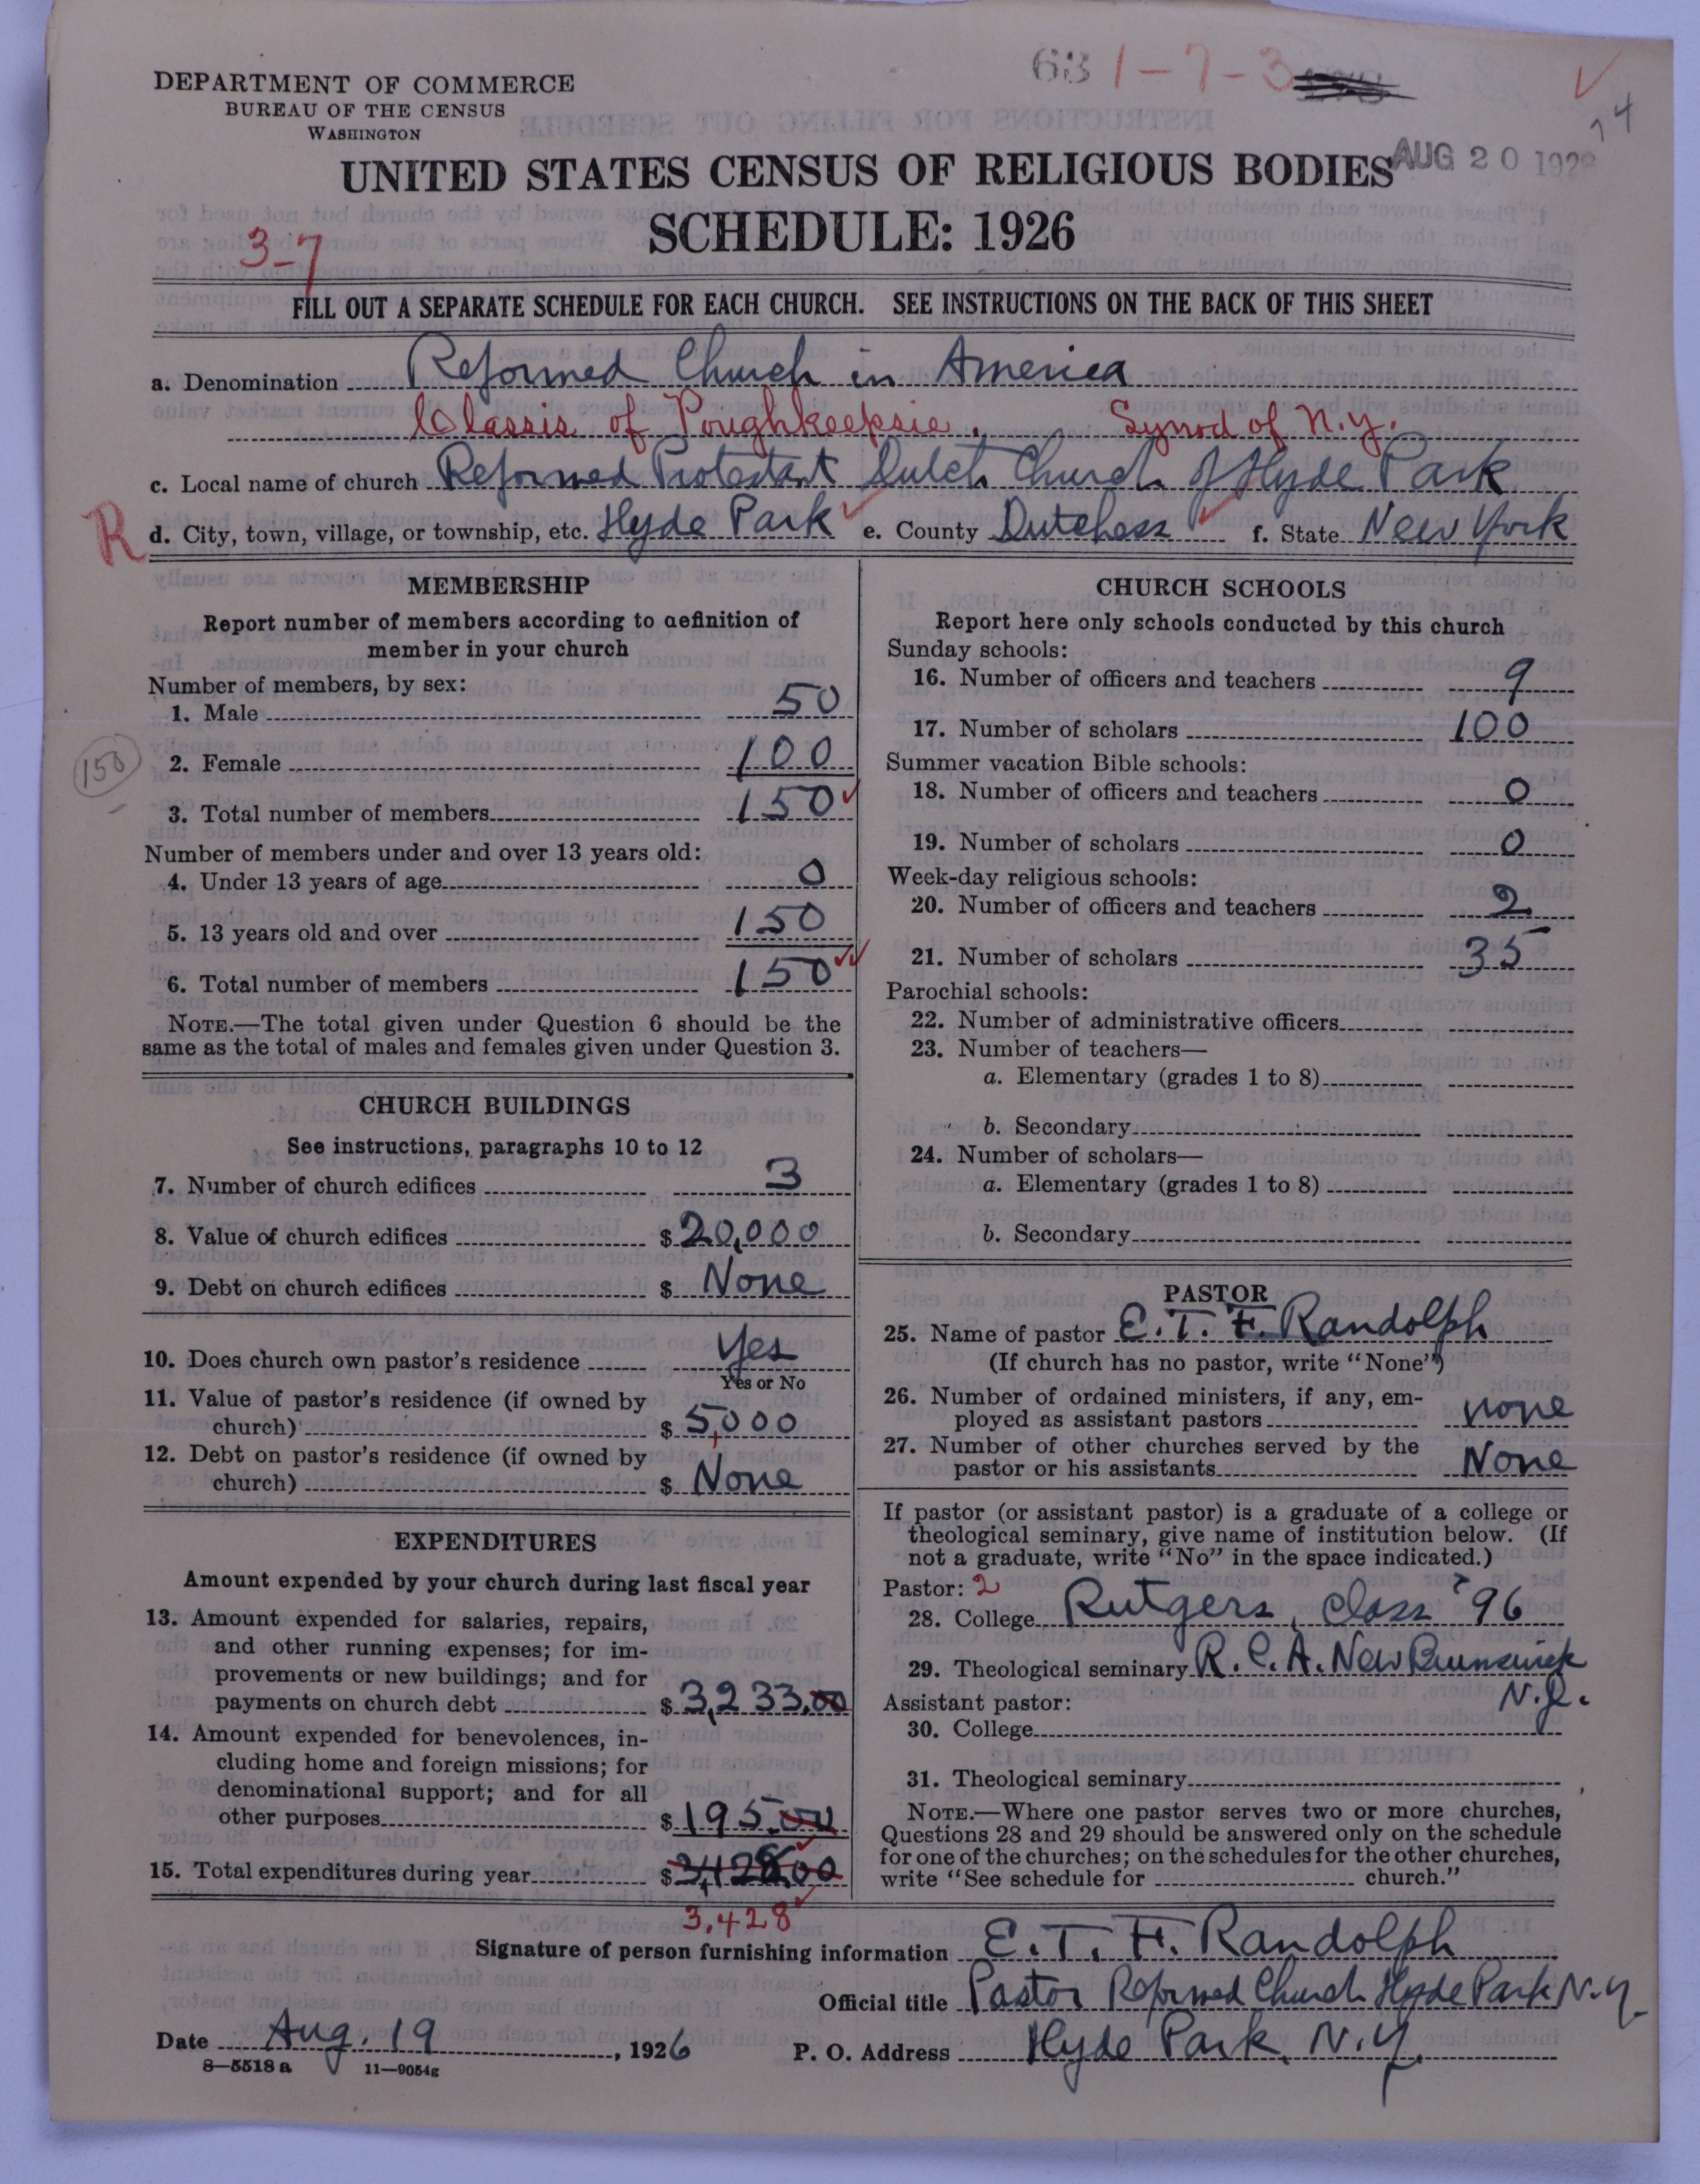 DEPARTMENT OF COMMERCE
BUREAU OF THE CENSUS
WASHINGTON
631-7-3
74
AUG 20 192
UNITED STATES CENSUS OF RELIGIOUS BODIES
SCHEDULE: 1926
3-7
FILL OUT A SEPARATE SCHEDULE FOR EACH CHURCH. SEE INSTRUCTIONS ON THE BACK OF THIS SHEET
a. Denomination Reformed Church in America
Classis of Poughkeepsie. Synod of N.Y.
c. Local name of church Reformed Protestant Dutch Church of Hyde Park
R d. City, town, village, or township, etc. Hyde Park e. County Dutchess f. State New York
MEMBERSHIP
Report number of members according to definition of
member in your church
Number of members, by sex:
1. Male 50
2. Female 100
150
3. Total number of members 150
Number of members under and over 13 years old:
4. Under 13 years of age 0
5. 13 years old and over 150
6. Total number of members 150
NOTE.—The total given under Question 6 should be the
same as the total of males and females given under Question 3.
CHURCH BUILDINGS
See instructions, paragraphs 10 to 12
7. Number of church edifices 3
8. Value of church edifices $20,000
9. Debt on church edifices $ None
10. Does church own pastor's residence Yes
Yes or No
11. Value of pastor's residence (if owned by
church) $ 5,000
12. Debt on pastor's residence (if owned by
church) $ None
EXPENDITURES
Amount expended by your church during last fiscal year
13. Amount expended for salaries, repairs,
and other running expenses; for im-
provements or new buildings; and for
payments on church debt $ 3,233.00
14. Amount expended for benevolences, in-
cluding home and foreign missions; for
denominational support; and for all
other purposes $ 195.00
15. Total expenditures during year $3,428.00
3,428
CHURCH SCHOOLS
Report here only schools conducted by this church
Sunday schools:
16. Number of officers and teachers 9
17. Number of scholars 100
Summer vacation Bible schools:
18. Number of officers and teachers 0
19. Number of scholars 0
Week-day religious schools:
20. Number of officers and teachers 2
21. Number of scholars 35
Parochial schools:
22. Number of administrative officers
23. Number of teachers—
a. Elementary (grades 1 to 8)
b. Secondary
24. Number of scholars—
a. Elementary (grades 1 to 8)
b. Secondary
PASTOR
25. Name of pastor E. T. F. Randolph
(If church has no pastor, write "None")
26. Number of ordained ministers, if any, em-
ployed as assistant pastors none
27. Number of other churches served by the
pastor or his assistants None
If pastor (or assistant pastor) is a graduate of a college or
theological seminary, give name of institution below. (If
not a graduate, write "No" in the space indicated.)
Pastor: 2
28. College Rutgers, Class '96
29. Theological seminary R.C.A. New Brunswick
N.J.
Assistant pastor:
30. College
31. Theological seminary
NOTE.—Where one pastor serves two or more churches,
Questions 28 and 29 should be answered only on the schedule
for one of the churches; on the schedules for the other churches,
write "See schedule for church."
Signature of person furnishing information E. T. F. Randolph
Official title Pastor Reformed Church Hyde Park N.Y.
Date Aug. 19, 1926 P. O. Address Hyde Park, N.Y.
8—5518 a 11—9054g